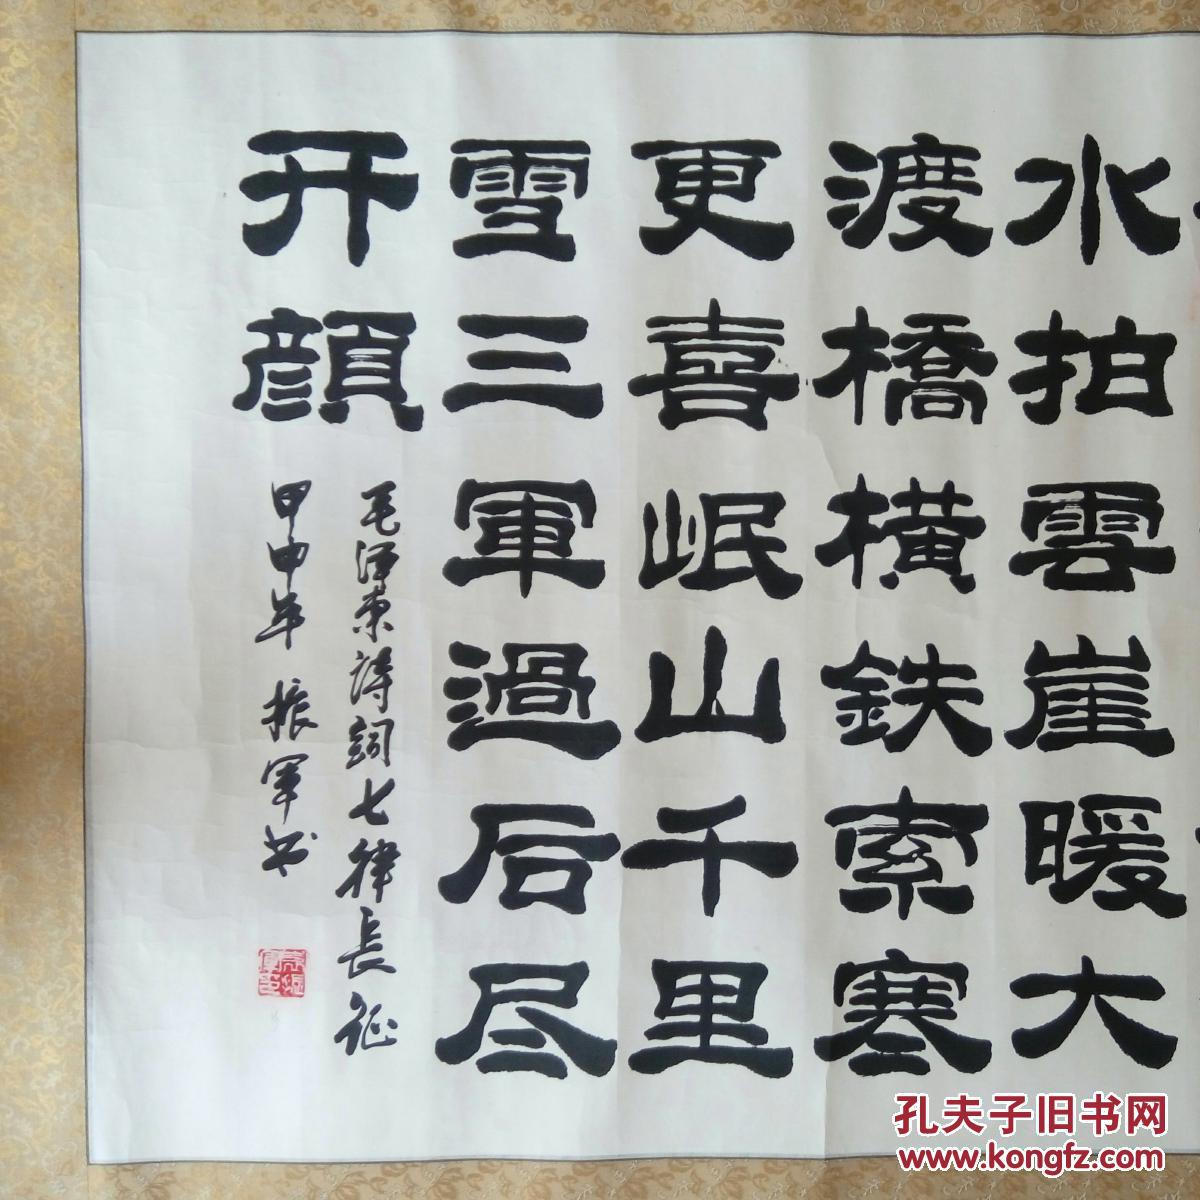 水拍雲崖暖大
渡橋橫鉄索寒
更喜岷山千里
雪三軍過后尽
开顔
毛泽东詩詞七律長征
甲申年 振军书
孔夫子旧书网
www.kongfz.com